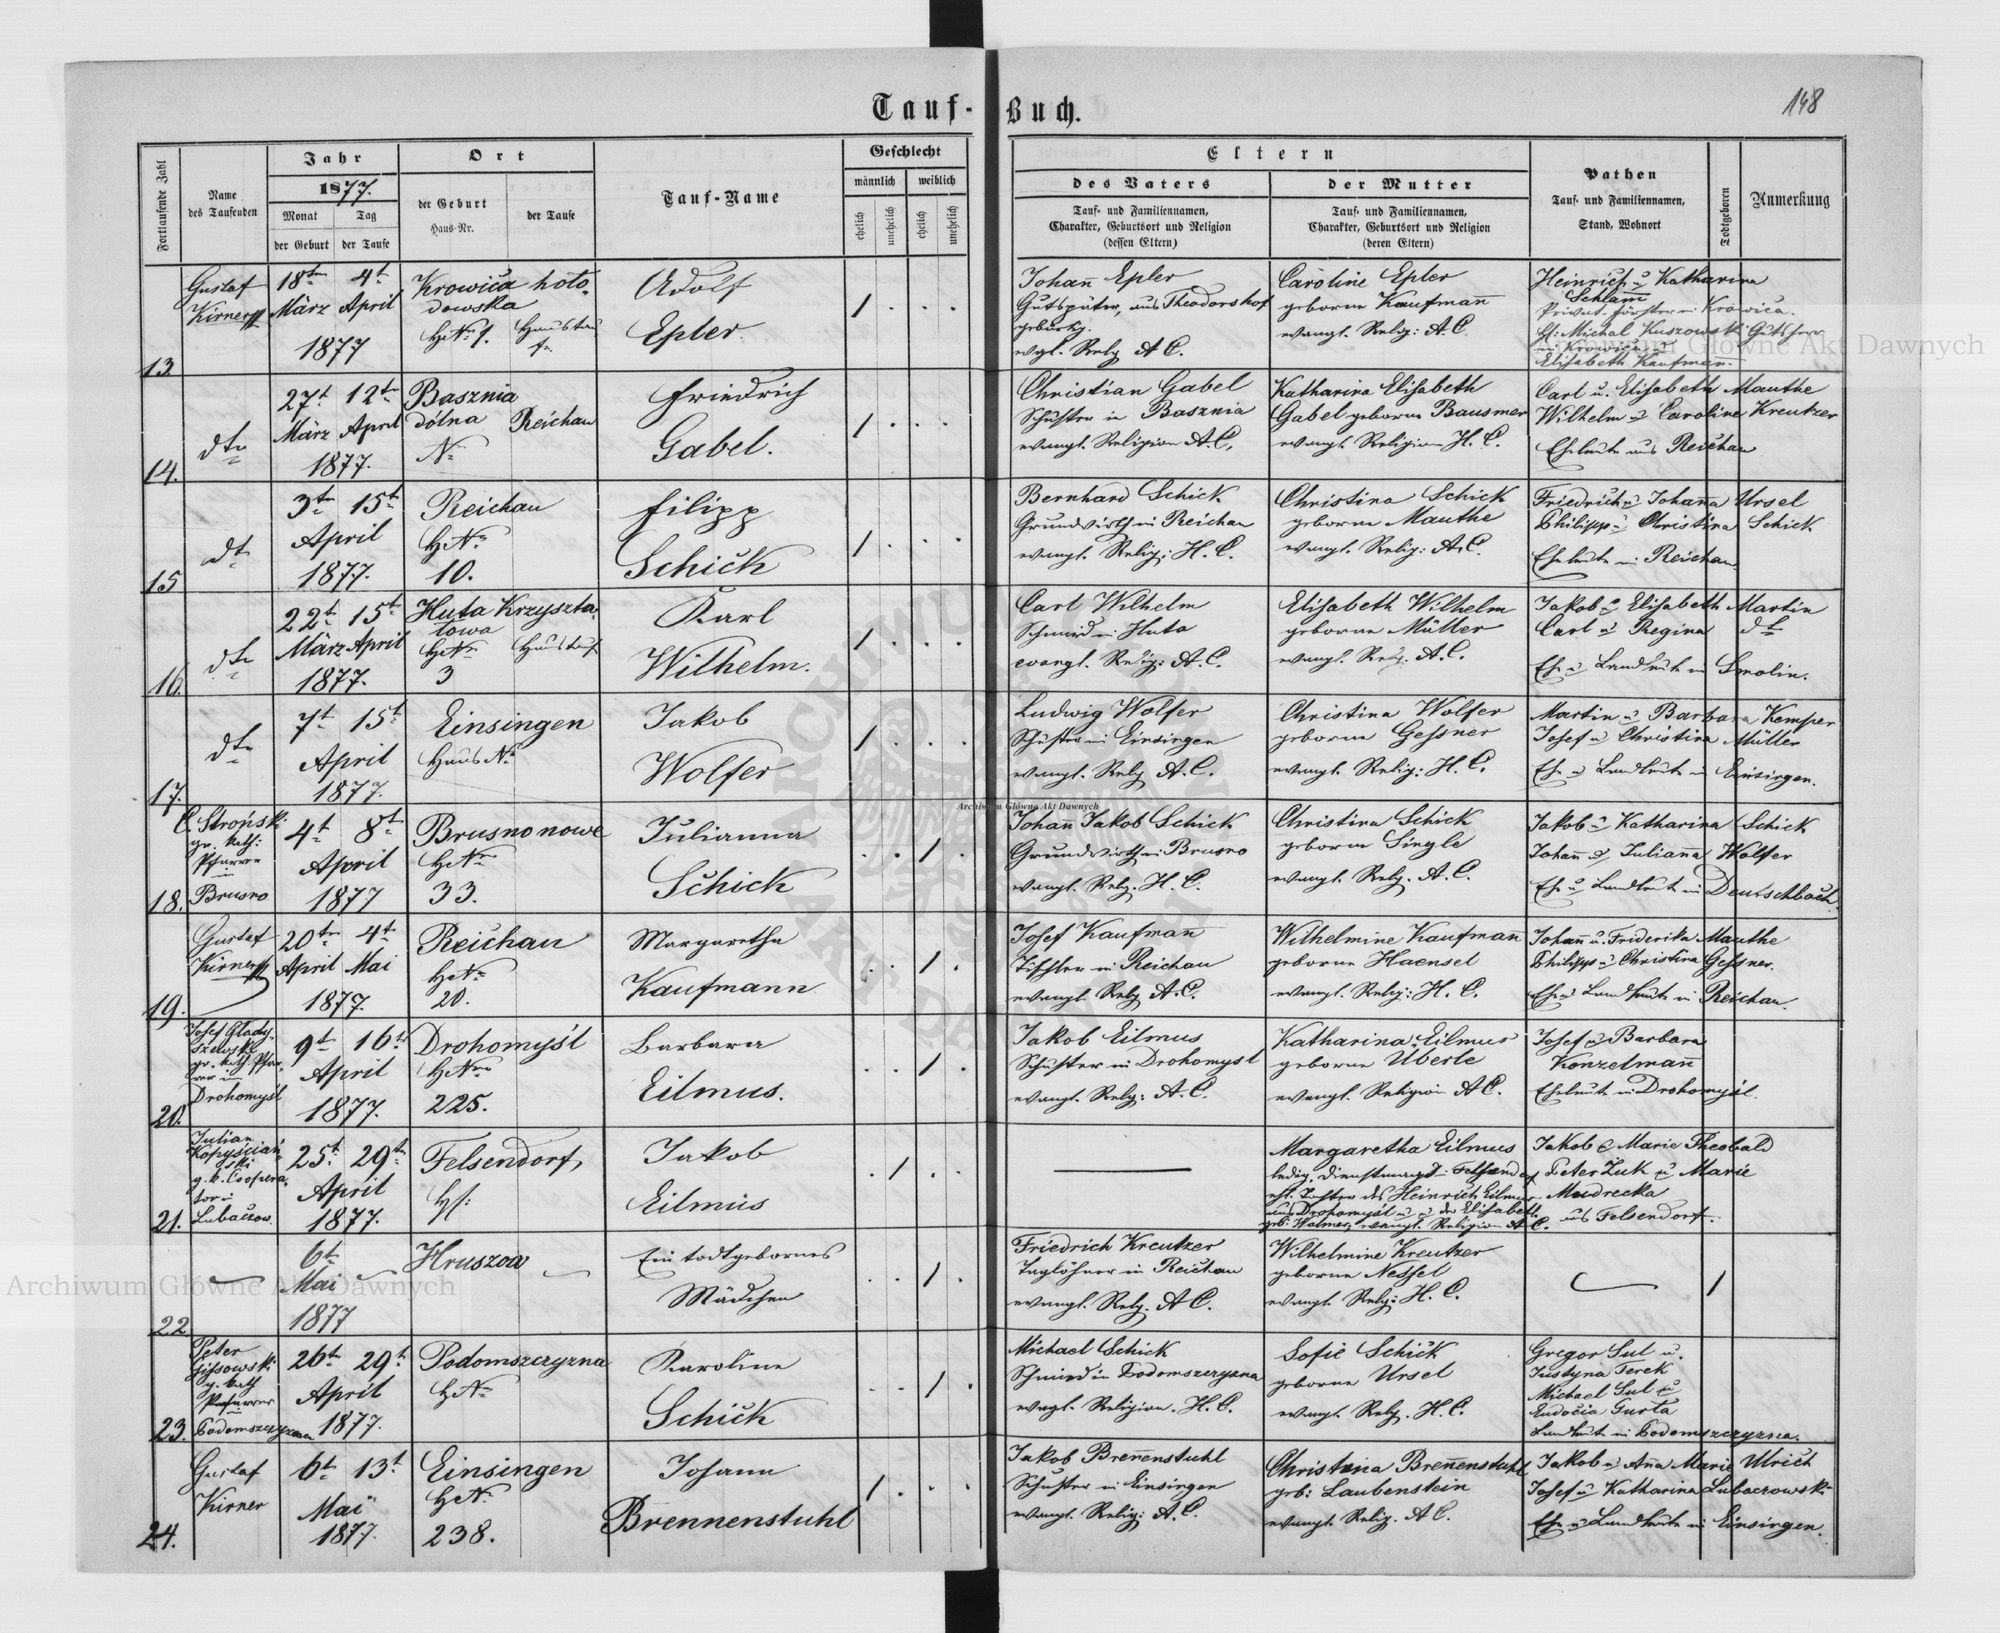 Tauf-Buch.
148
Fortlaufende Zahl
Name
des Taufenden
Jahr
1877.
Monat Tag
der Geburt der Taufe
Ort
der Geburt
Haus-Nr.
der Taufe
Tauf-Name
Geschlecht
männlich weiblich
ehelich unehelich ehelich unehelich
Eltern
des Vaters
Tauf- und Familiennamen,
Charakter, Geburtsort und Religion
(dessen Eltern)
der Mutter
Tauf- und Familiennamen,
Charakter, Geburtsort und Religion
(deren Eltern)
Pathen
Tauf- und Familiennamen,
Stand, Wohnort
Todtgeboren
Anmerkung
13.
Gustaf
Kirner
18ten 4t
März April
1877
Krowica hoło-
dowska
HNr 1. Haustau
fe
Adolf
Epler
1
Johann Epler
Gutspäter, aus Theodorshof
gebürtig.
evgl. Relg A.C.
Caroline Epler
geborne Kaufmann
evangl. Relig: A.C.
Heinrich u Katharina
Schlam
Privat. Förster in Krowica.
H. Michal Kuszowski Gutsherr
in Krowica u
Elisabeth Kaufmann.
14.
dto
27t 12t
März April
1877.
Basznia
dólna Reichau
Nr
Friedrich
Gabel.
1
Christian Gabel
Schuster in Basznia
evangl. Religion A.C.
Katharina Elisabeth
Gabel geborne Bausmer
evangl. Religion H.C.
Carl u. Elisabeth Mauthe
Wilhelm u Caroline Kreutzer
Eheleute aus Reichau
15
dt
3t 15t
April
1877.
Reichau
HNr
10.
Filipp
Schick
1
Bernhard Schick
Grundwirth in Reichau
evangl. Relig: H.C.
Christina Schick
geborne Mauthe
evangl. Relig: A.C.
Friedrich u Johanna Ursel
Philipp u Christina Schick
Eheleute in Reichau
16.
dto
22t 15t
März April
1877.
Huta Krzyszta-
łowa
HNr Haustauf
3
Karl
Wilhelm.
1
Carl Wilhelm
Schmied in Huta
evangl. Relig: A.C.
Elisabeth Wilhelm
geborne Müller
evangl. Relig: A.C.
Jakob u Elisabeth Martin
Carl u Regina dto
Ehe u Landleute in Smolin.
17.
dto
7t 15t
April
1877.
Einsingen
Haus Nr
Jakob
Wolfer
1
Ludwig Wolfer
Schuster in Einsingen
evangl. Relg A.C.
Christina Wolfer
geborne Gessner
evangl. Relig: H.C.
Martin u Barbara Kemper
Josef u Christina Müller
Ehe u Landleute in Einsingen.
18.
C. Stroński
gr. kath:
Pfarrer
in
Brusno
4t 8t
April
1877
Brusno nowe
HNr
33.
Julianna
Schick
1
Johann Jakob Schick
Grundwirth in Brusno
evangl. Relg. H.C.
Christina Schick
geborne Single
evangl. Relg. A.C.
Jakob u Katharina Schick
Johann u Julianna Wolfer
Ehe u Landleute in Deutschbach.
19.
Gustaf
Kirner
20ten 4t
April Mai
1877.
Reichau
HNr
20.
Margaretha
Kaufmann
1
Josef Kaufman
Tischler in Reichau
evangl. Relg A.C.
Wilhelmine Kaufmann
geborne Haensel
evangl. Relig: H.C.
Johann u. Friderika Mauthe
Philipp u Christina Gessner.
Ehe u Landleute in Reichau.
20.
Josef Glady-
szewski
gr. kath. Pfar-
rer in
Drohomyśl
9t 16t
April
1877.
Drohomyśl
HNro
225.
Barbara
Eilmus.
1
Jakob Eilmus
Schuster in Drohomysl
evangl. Relig: A.C.
Katharina Eilmus
geborne Überle
evangl. Religion A.C.
Josef u Barbara
Konzelmann
Eheleute in Drohomyśl.
21.
Julian
Kopyścian-
ski
g.k. Coopera-
tor in
Lubaczow.
25t 29t
April
1877.
Felsendorf,
Hs:
Jakob
Eilmus
1
Margaretha Eilmus
ledig, Dienstmagd in Felsendorf
ehl. Tochter des Heinrich Eilmus
aus Drohomyśl u der Elisabeth
geb: Halmer, evangl. Religion A.C.
Jakob & Marie Theobald
Peter Żuk u Marie
Mudrecka
aus Felsendorf.
22
6t
Mai
1877
Hruszow
Ein todtgebornes
Mädchen
1
Friedrich Kreutzer
Taglöhner in Reichau
evangl. Relg. A.C.
Wilhelmine Kreutzer
geborne Nessel
evangl. Relg: H.C.
1
23.
Peter
g. kath
Pfarrer
in
Podomszczyzna
26t 29t
April
1877.
Podomszczyzna
HNr
Karoline
Schick
1
Michael Schick
Schmied in Podomszczyzna
evngl. Religion. H.C.
Sofie Schick
geborne Ursel
evangl. Relg. H.C.
Gregor Sul u.
Justyna Terek
Michael Sul u
Eudocia Gusta
Landleute in Podomszczyzna.
24.
Gustaf
Kirner
6t 13t
Mai
1877.
Einsingen
HNr
238.
Johann
Brennenstuhl
1
Jakob Brennenstuhl
Schuster in Einsingen
evangl. Relig: A.C.
Christina Brennenstuhl
geb: Laubenstein
evangl. Relig. A.C.
Jakob u Anna Marie Ulrich
Josef u Katharina Lubaczowski
Ehe u Landleute in Einsingen.
Archiwum Główne Akt Dawnych
Archiwum Główne Akt Dawnych
Archiwum Główne Akt Dawnych